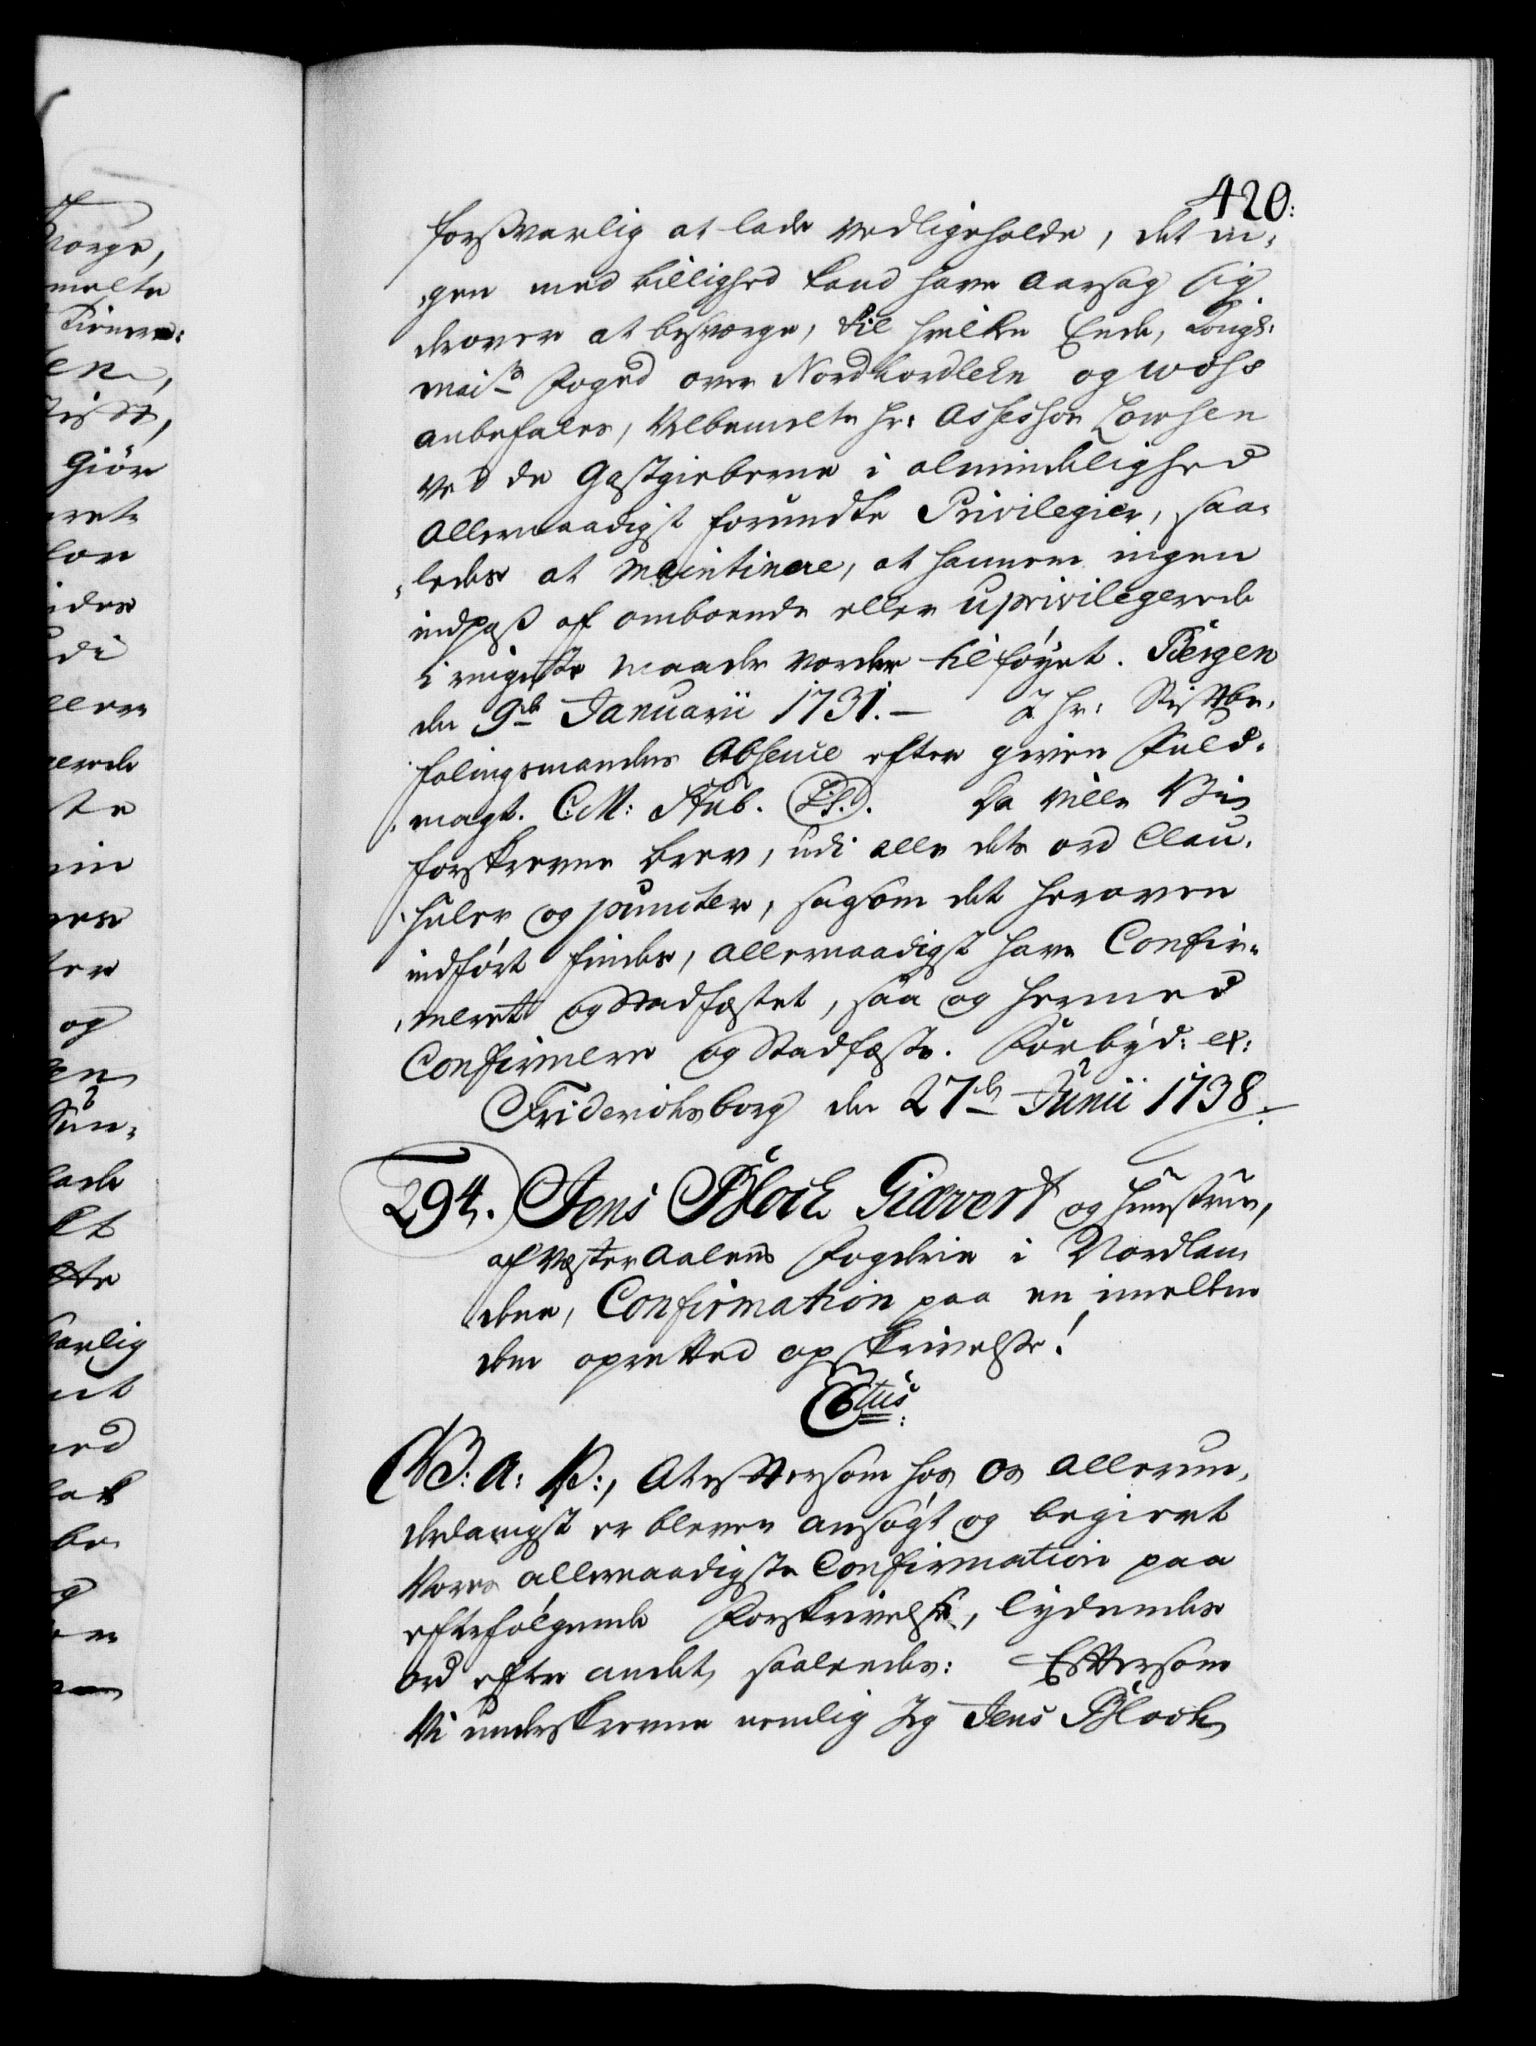 420:
forsvarlig at lade vedligeholde, det in-
gen med billighed kand have aarsag sig
derover at besverge, til hvilken Ende, Kongl:
Maits Foged over Nordhordlehn og Woss
anbefales, Velbemelte hr: Assessor Lowsen
ved de Gæstgieberne i almindelighed
allernaadigst forundte Privilegier, saa-
ledes at maintinere, at hannem ingen
indpas af omboende eller uprivilegerede
i ringeste maade vorder tilføyet. Bergen
den 9de Januarii 1731. — I hr: Stiftbe-
falingsmandens Absence efter given Fuld-
magt. C. M: Stub. (L.S.). Da ville Vi
forskrevne brev, udi alle dets ord Clau-
suler og puncter, saasom det heroven
indført findes, allernaadigst have Confir-
meret og Stadfæstet, saa og hermed
Confirmere og Stadfæste. Forbyd: etc:
Friderichsborg den 27de Junii 1738.
294. Jens Bloch Giævert og Hustrue,
af Westeraalens Fogderie i Nordlan-
dene, Confirmation paa en imellem
dem opretted opskrivelse!
C6tus:
W: A: V:, At eftersom hos os allerun-
derdanigst er bleven ansøgt og begiert
Vores allernaadigste Confirmation paa
efterfølgende Forskrivelse, lydendes
ord efter andet, saaledes: Eftersom
Vi underskrevne nemlig Jeg Jens Bloch